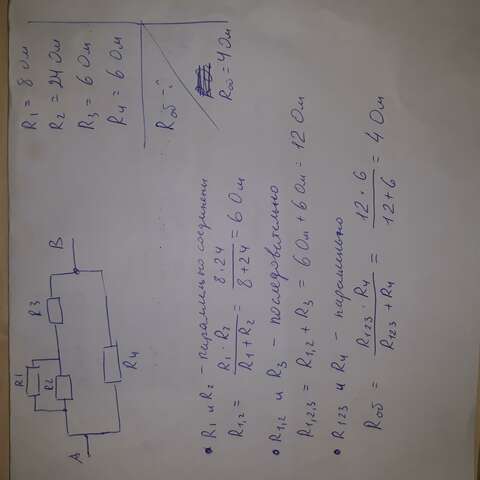 R1 = 8 Ом
R2 = 24 Ом
R3 = 6 Ом
R4 = 6 Ом
Rоб = ?
Rоб = 4 Ом
R1
R2
R3
R4
A
B
• R1 и R2 - параллельно соединены
R1,2 = R1 · R2 / R1 + R2 = 8 · 24 / 8 + 24 = 6 Ом
• R1,2 и R3 - последовательно
R1,2,3 = R1,2 + R3 = 6 Ом + 6 Ом = 12 Ом
• R123 и R4 - параллельно
Rоб = R123 · R4 / R123 + R4 = 12 · 6 / 12 + 6 = 4 Ом